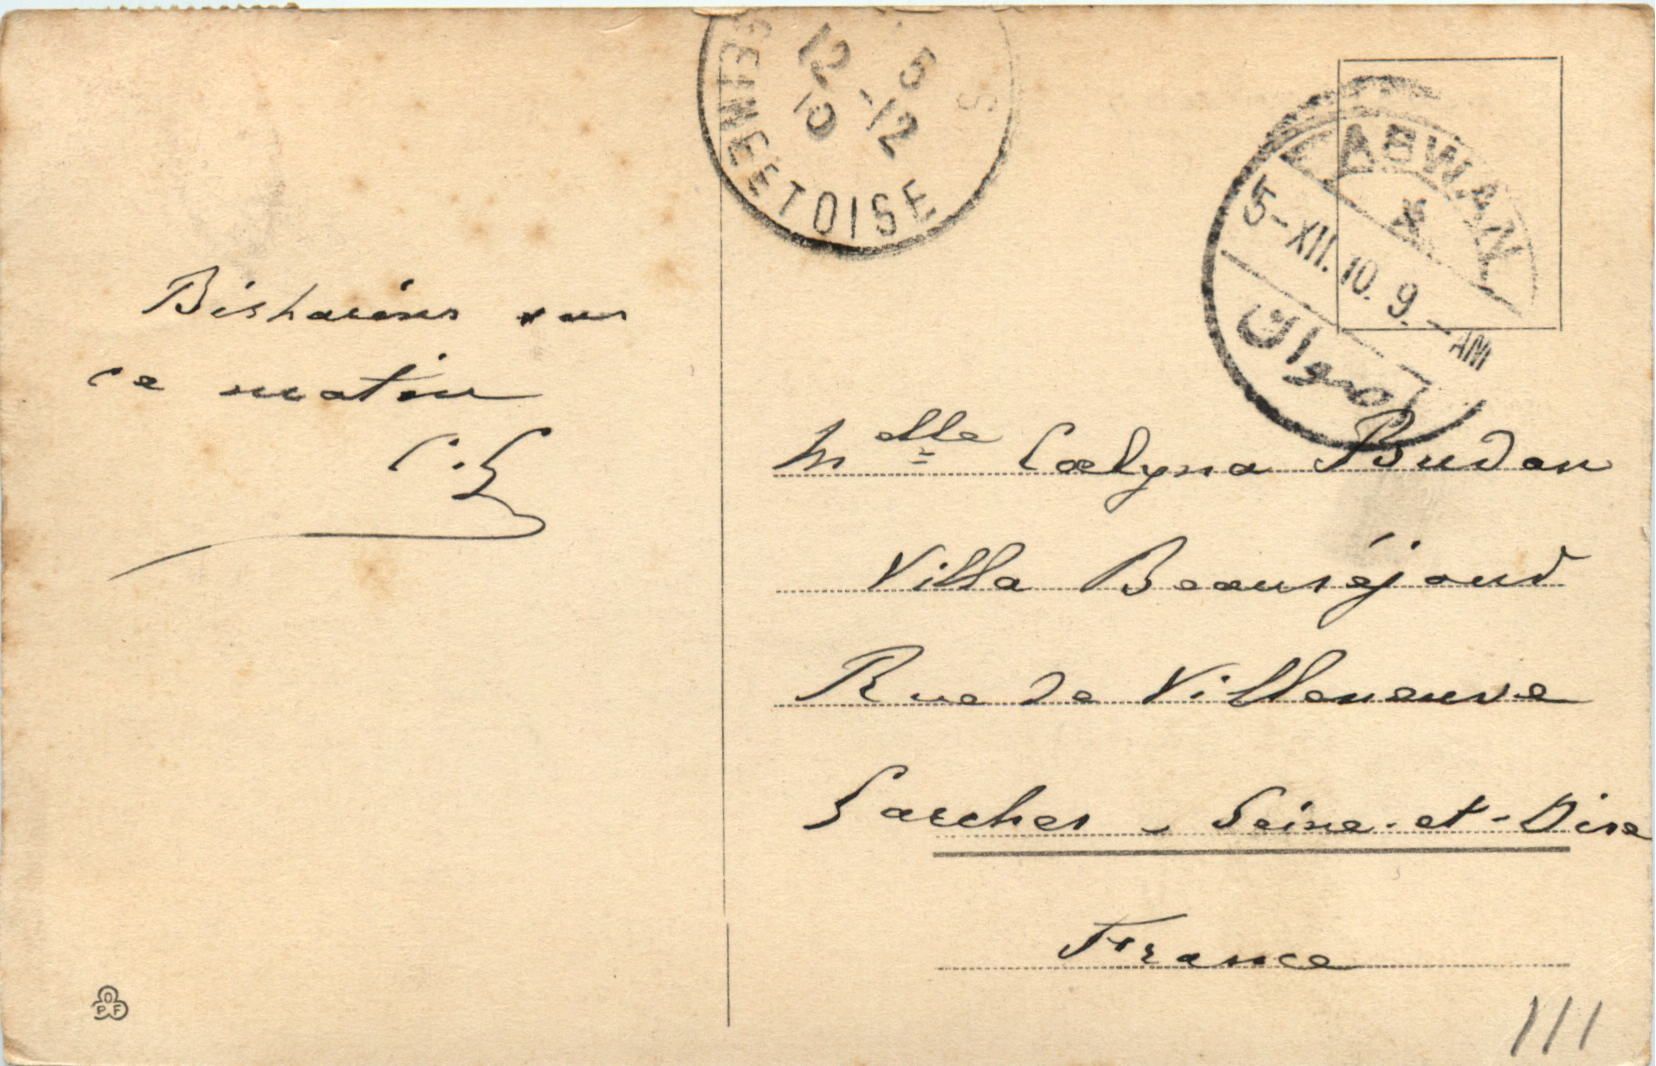 SEINE ET OISE
12 5
10 -12
S
ASWAN
5-XII.10. 9.-AM
اصوان
Bisharins vus
ce matin
C.L
Melle Coelyna Budan
Villa Beauséjour
Rue de Villeneuve
Garches - Seine-et-Oise
France
O
P F
111